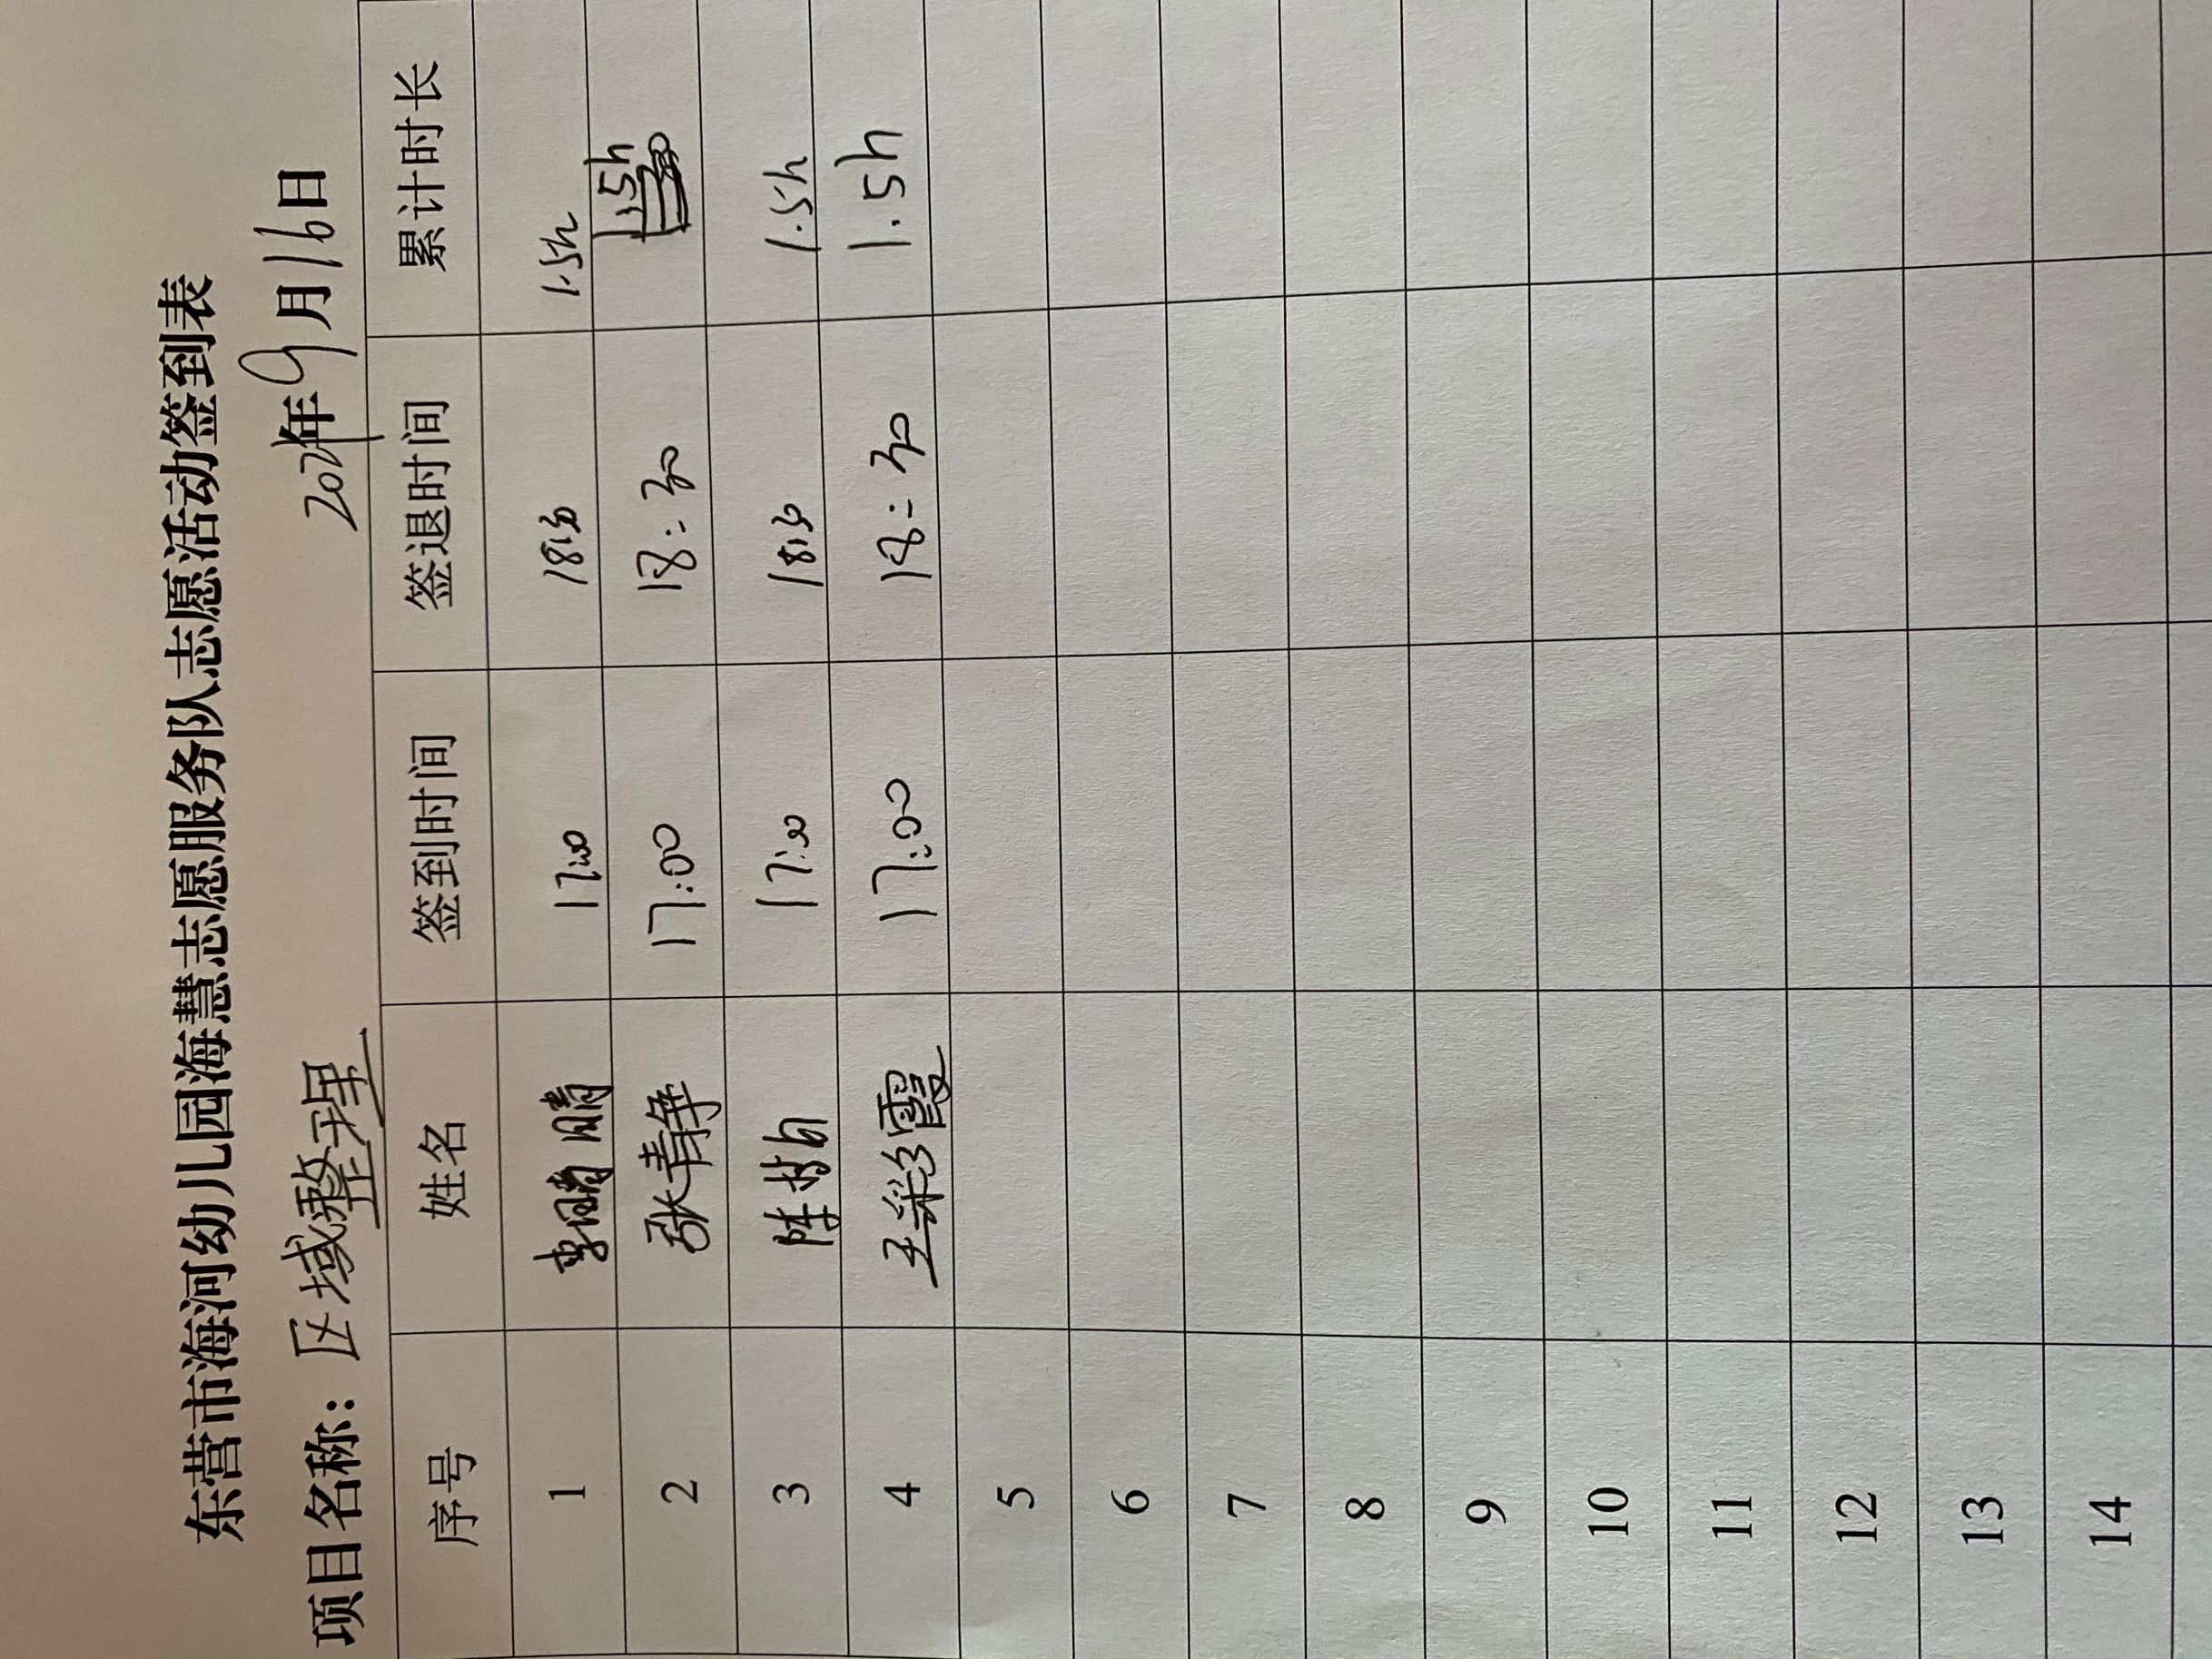 东营市海河幼儿园海慧志愿服务队志愿活动签到表
项目名称：区域整理 年9月16日
序号 姓名 签到时间 签退时间 累计时长
1 17:00 18:30 1.5h
2 张静 17:00 18:30 1.5h
3 陈 17:00 18:30 1.5h
4 王彩霞 17:00 18:30 1.5h
5
6
7
8
9
10
11
12
13
14